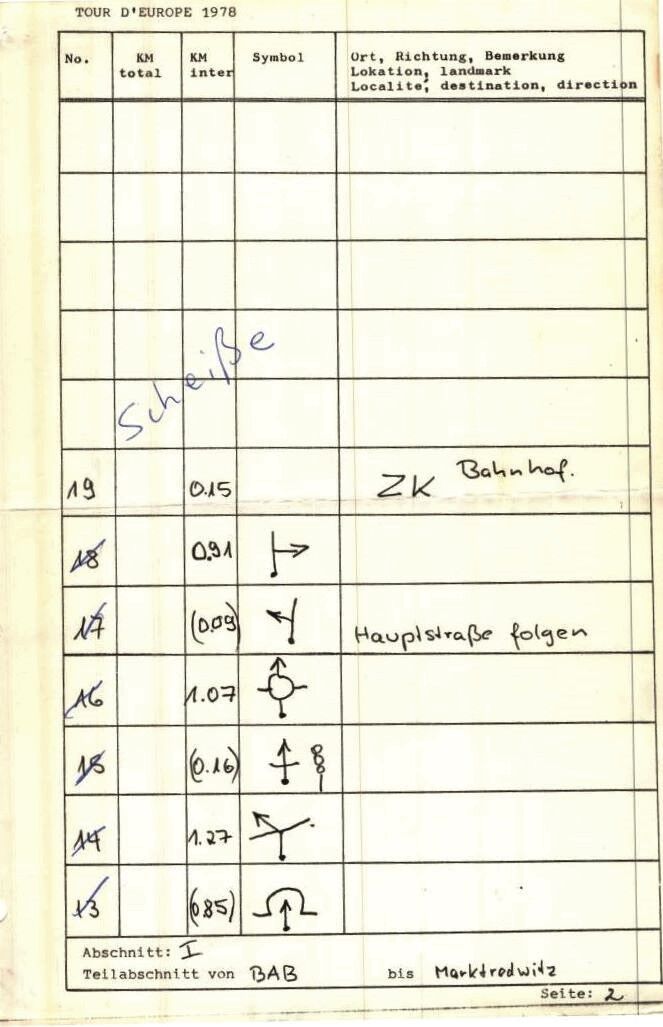 TOUR D'EUROPE 1978
No. KM total KM inter Symbol Ort, Richtung, Bemerkung
Lokation, landmark
Localite, destination, direction
Scheiße
19 0.15 ZK Bahnhof.
18 0.91
17 (0.09) Hauptstraße folgen
16 1.07
15 (0.16)
14 1.27
13 (0.85)
Abschnitt: I
Teilabschnitt von BAB bis Marktredwitz
Seite: 2